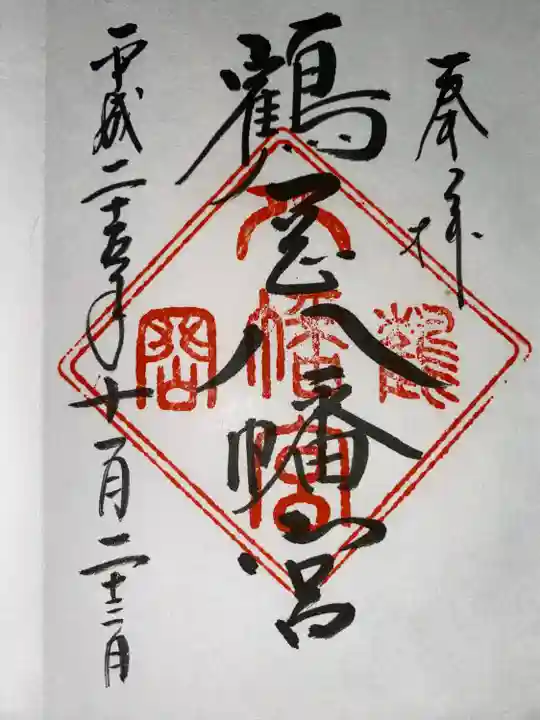 奉拝
鶴岡八幡宮
鶴
八幡宮
岡
平成二十五年十一月二十三日